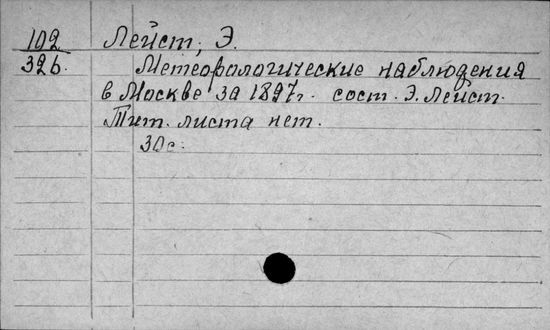 102 Лейст, Э.
326. Метеорологические наблюдения
в Москве за 1897г. сост. Э. Лейст.
Тит. листа нет.
30с.